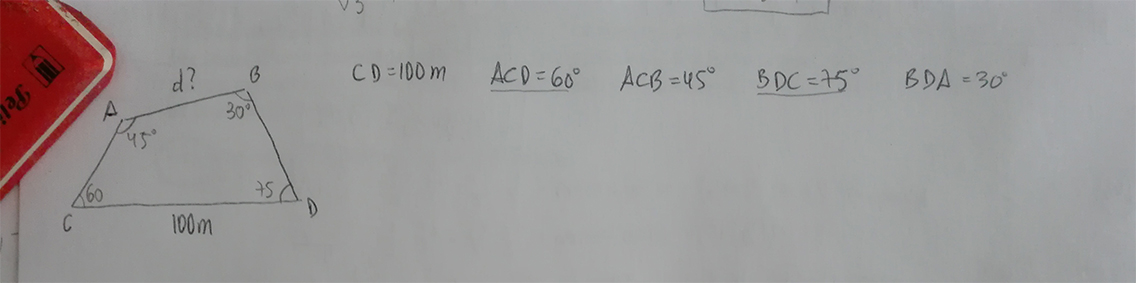 √3
CD = 100m ACD = 60° ACB = 45° BDC = 75° BDA = 30°
d? B
A 30°
45°
60 75
C D
100m
Peli